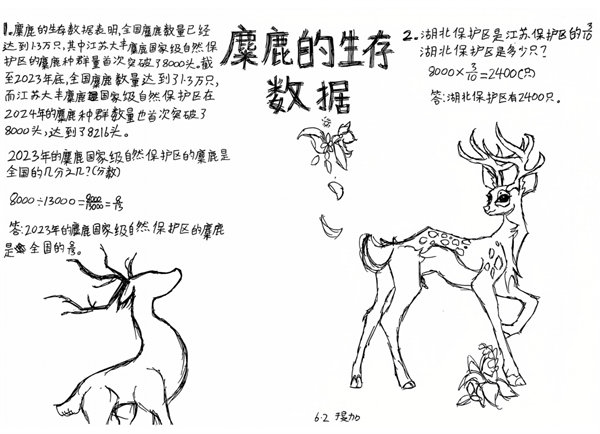 麋鹿的生存
数据
1.麋鹿的生存数据表明,全国麋鹿数量已经
达到1.3万只,其中江苏大丰麋鹿国家级自然保
护区的麋鹿种群量首次突破了8000头。截
至2023年底,全国麋鹿数量达到了1.3万只,
而江苏大丰麋鹿国家级自然保护区在
2024年的麋鹿种群数量也首次突破了
8000头,达到了8216头。
2023年的麋鹿国家级自然保护区的麋鹿是
全国的几分之几?(分数)
8000÷13000=8000/13000=8/13
答:2023年的麋鹿国家级自然保护区的麋鹿
是全国的8/13。
2.湖北保护区是江苏保护区的3/10
湖北保护区是多少只?
8000×3/10=2400(只)
答:湖北保护区有2400只。
6.2